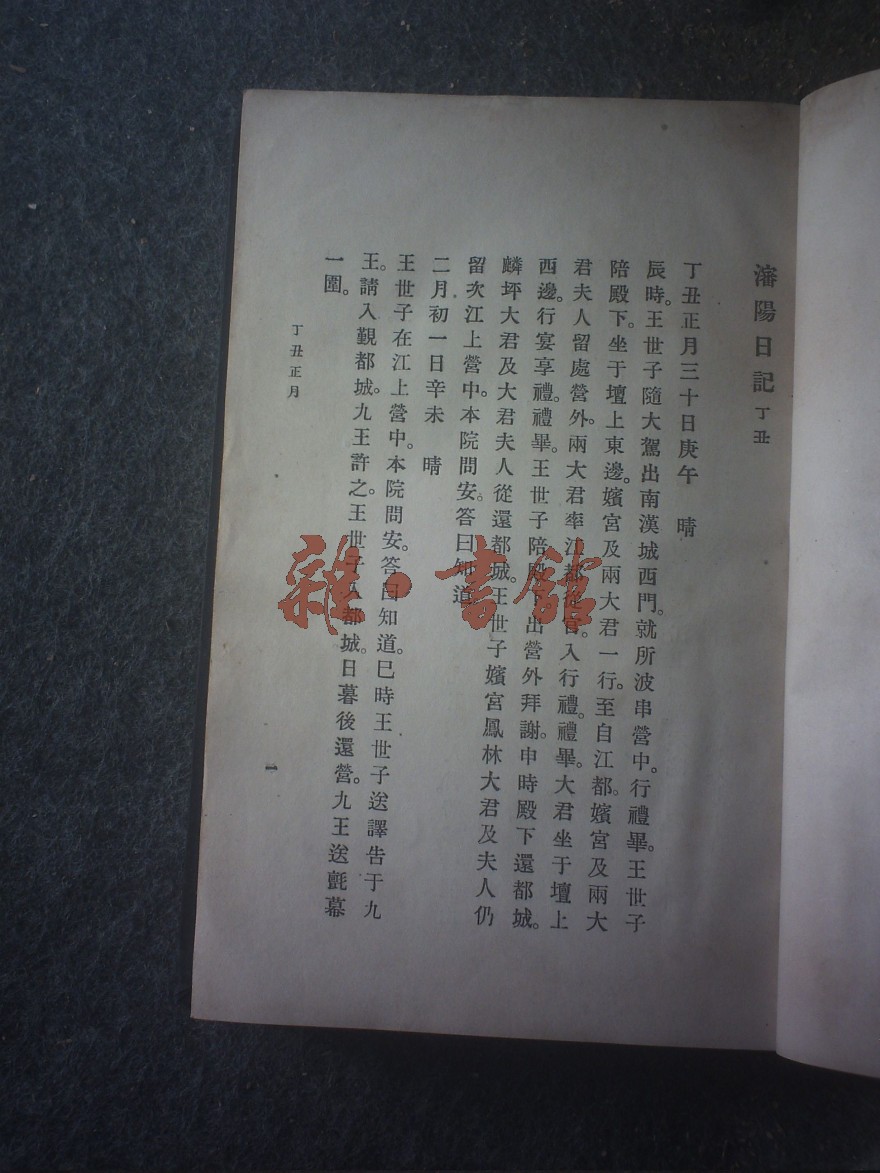 瀋陽日記 丁丑
丁丑正月三十日庚午 晴
辰時。王世子隨大駕出南漢城西門。就所波串營中。行禮畢。王世子
陪殿下。坐于壇上東邊。嬪宮及兩大君一行。至自江都。嬪宮及兩大
君夫人留處營外。兩大君率江都從官。入行禮。禮畢。大君坐于壇上
西邊。行宴享禮。禮畢。王世子陪殿下出營外拜謝。申時殿下還都城。
麟坪大君及大君夫人從還都城。王世子嬪宮鳳林大君及夫人仍
留次江上營中。本院問安。答曰知道。
二月初一日辛未 晴
王世子在江上營中。本院問安。答曰知道。巳時王世子送譯告于九
王。請入覲都城。九王許之。王世子入都城。日暮後還營。九王送氈幕
一圍。
丁丑正月
一
雜·書館